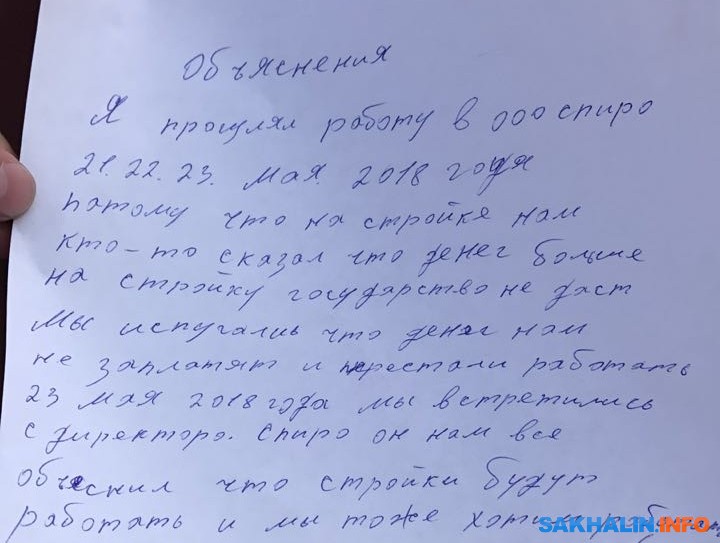 Объяснения
Я прогулял работу в ооо спиро
21. 22. 23. мая. 2018 года
патому что на стройке нам
кто-то сказал что денег больше
на стройку государство не даст
мы испугались что денег нам
не заплатят и перестали работать
23 мая 2018 года мы встретились
с директоро. Спиро он нам все
объяснил что стройки будут
работать и мы тоже хотим
SAKHALIN.INFO